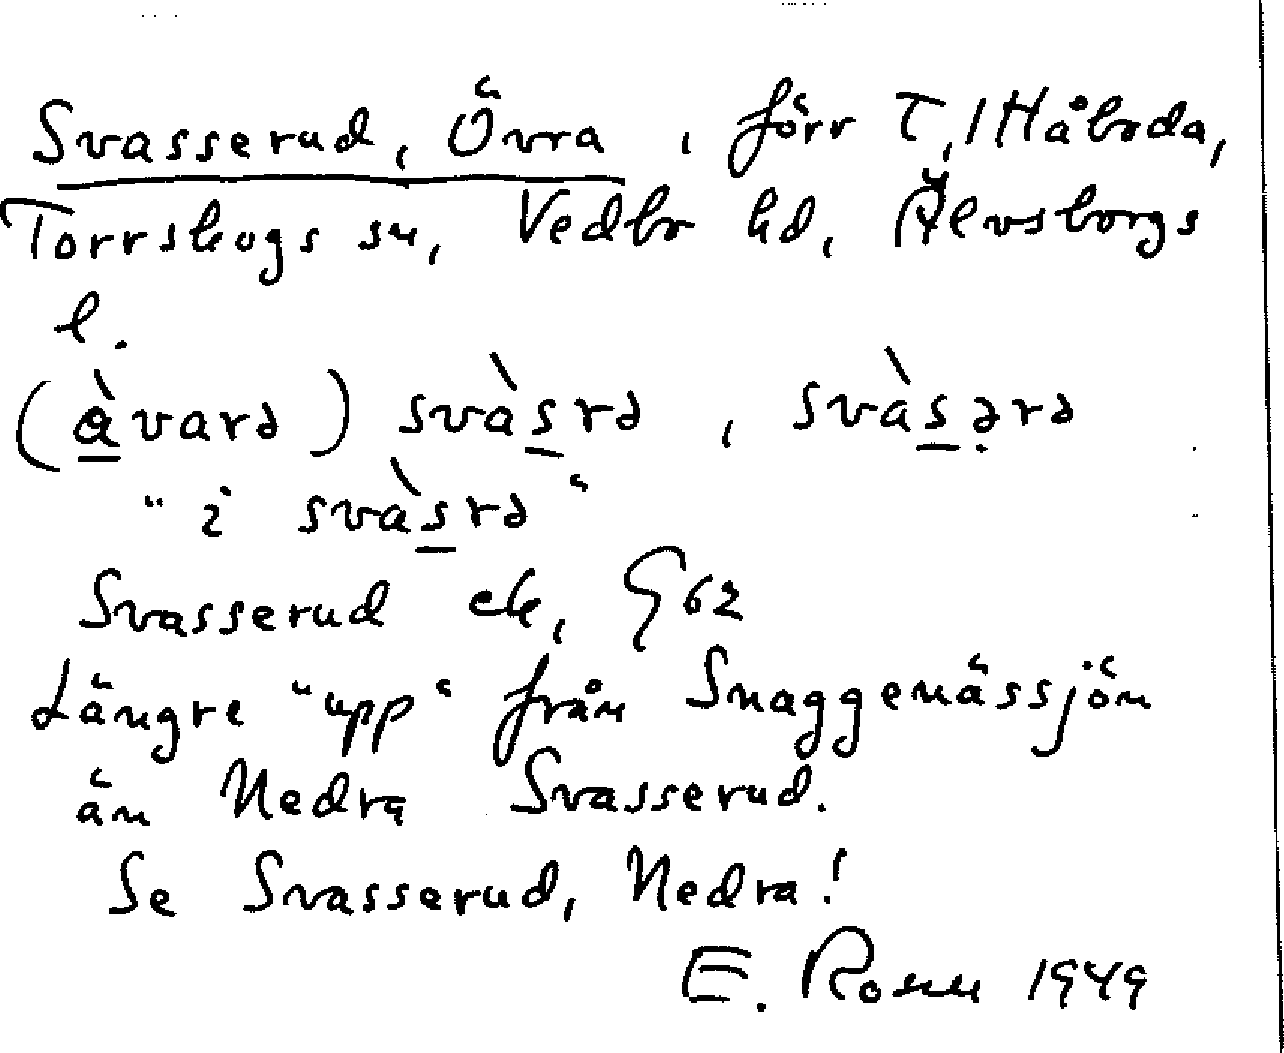 Svasserud, Övra, förr T, 1 Håbda,
Torrskogs sn, Vedbo hd, Älvsborgs
l.
(àvarə) svàsrə, svàsərə
"i svàsrə"
Svasserud ek, G62
Längre "upp" från Snaggenässjön
än Nedra Svasserud.
Se Svasserud, Nedra!
E. Rosen 1949